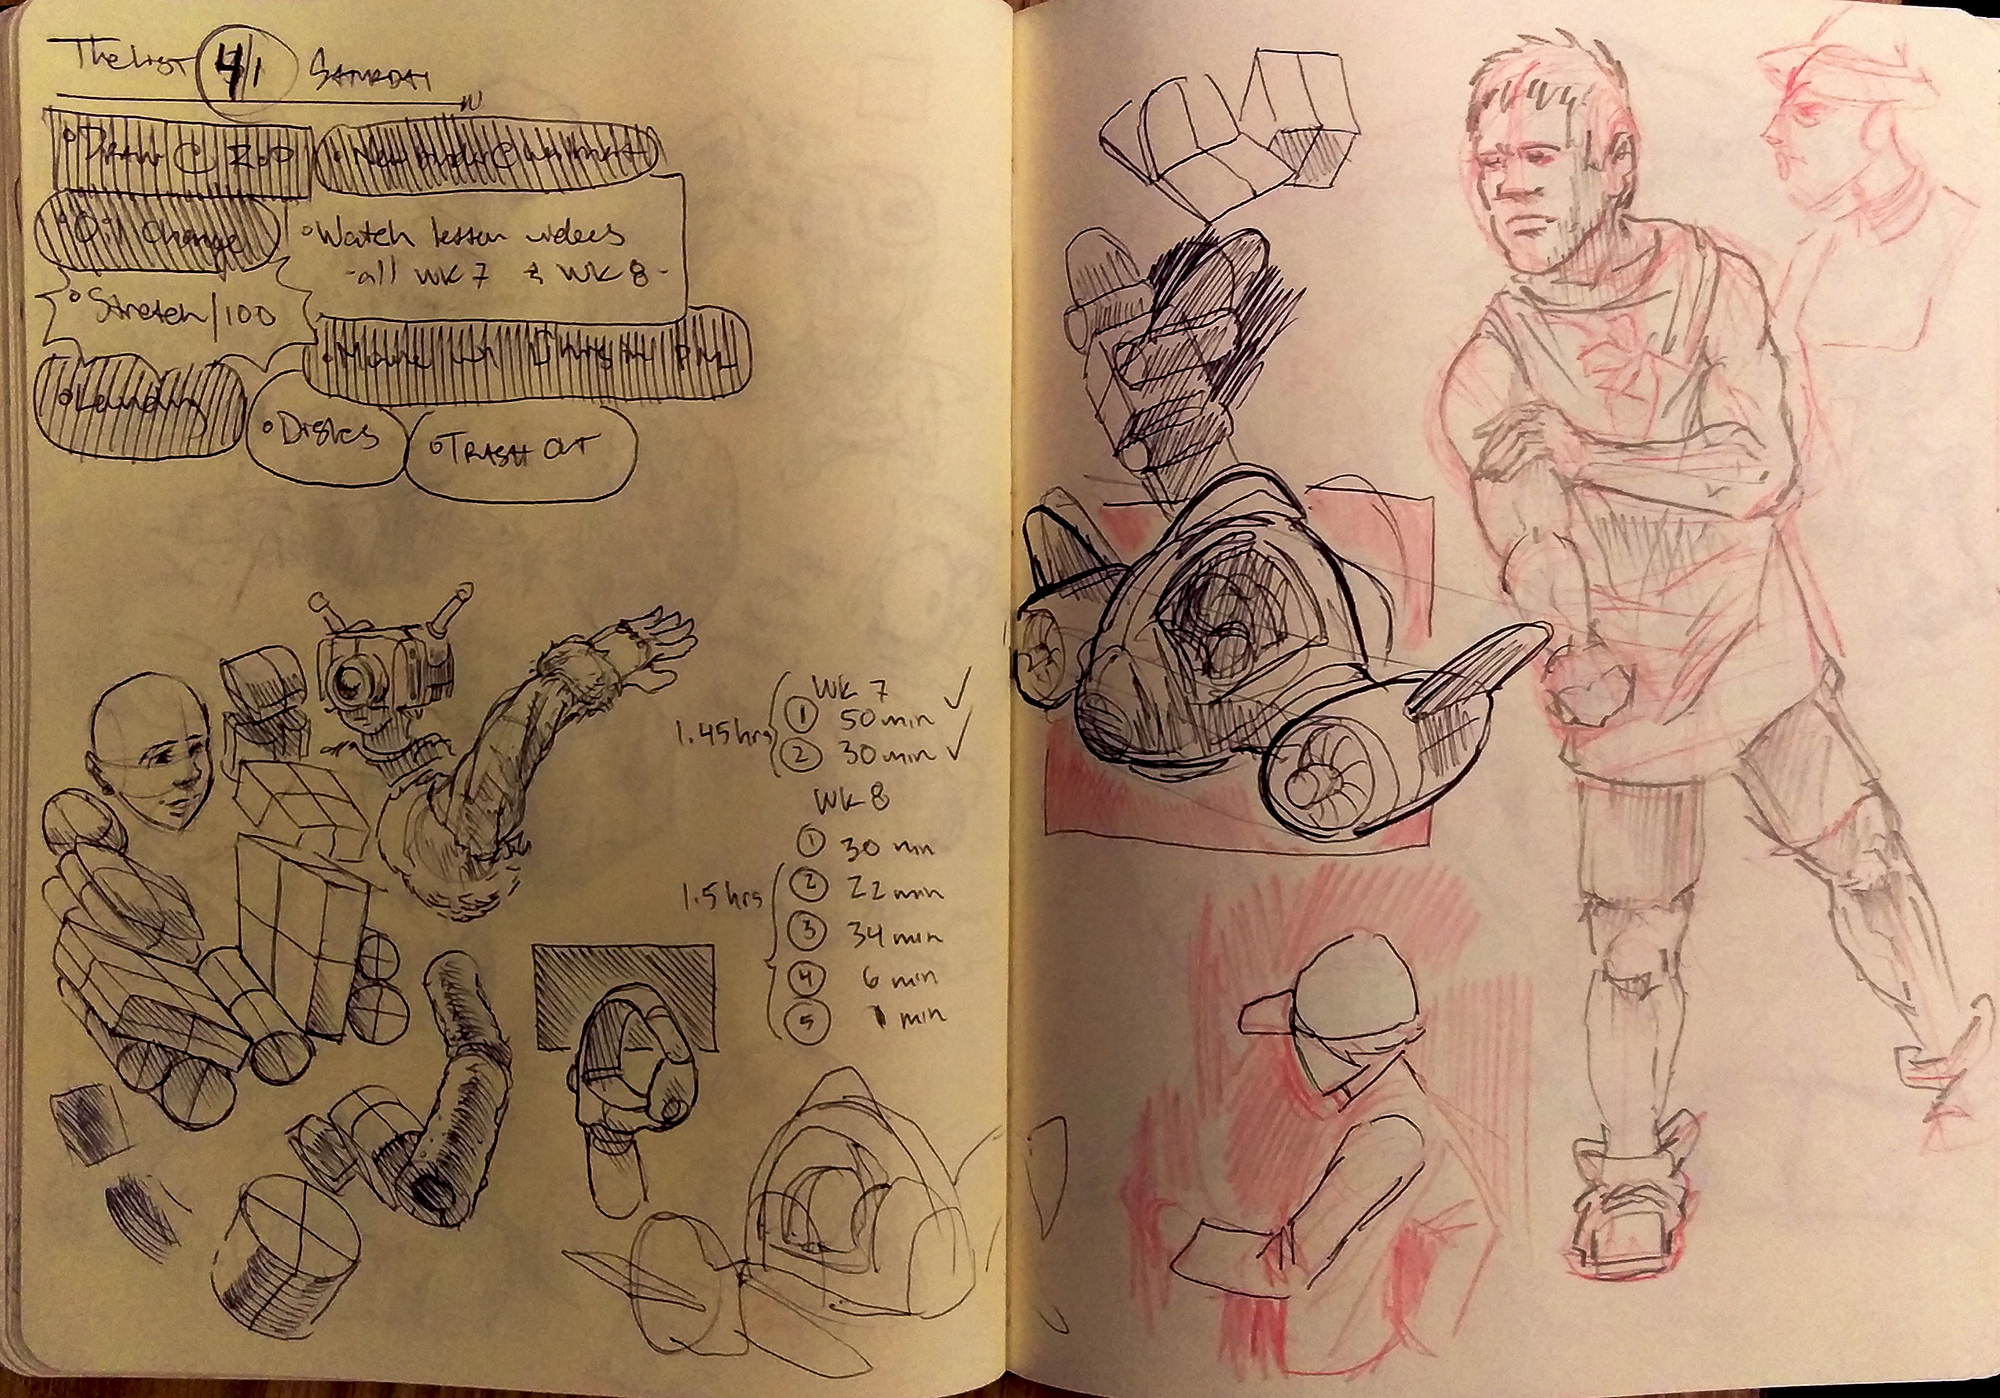 The List 4/1 Saturday
Draw @ ZoO
Oil Change
Watch lesson videos
-all wk 7 & wk 8-
Stretch/100
Movie w/
Laundry
Dishes
Trash Out
Wk 7
1.45hrs
1 50min ✓
2 30min ✓
Wk 8
1 30 min
1.5hrs
2 22 min
3 34 min
4 6 min
5 1 min